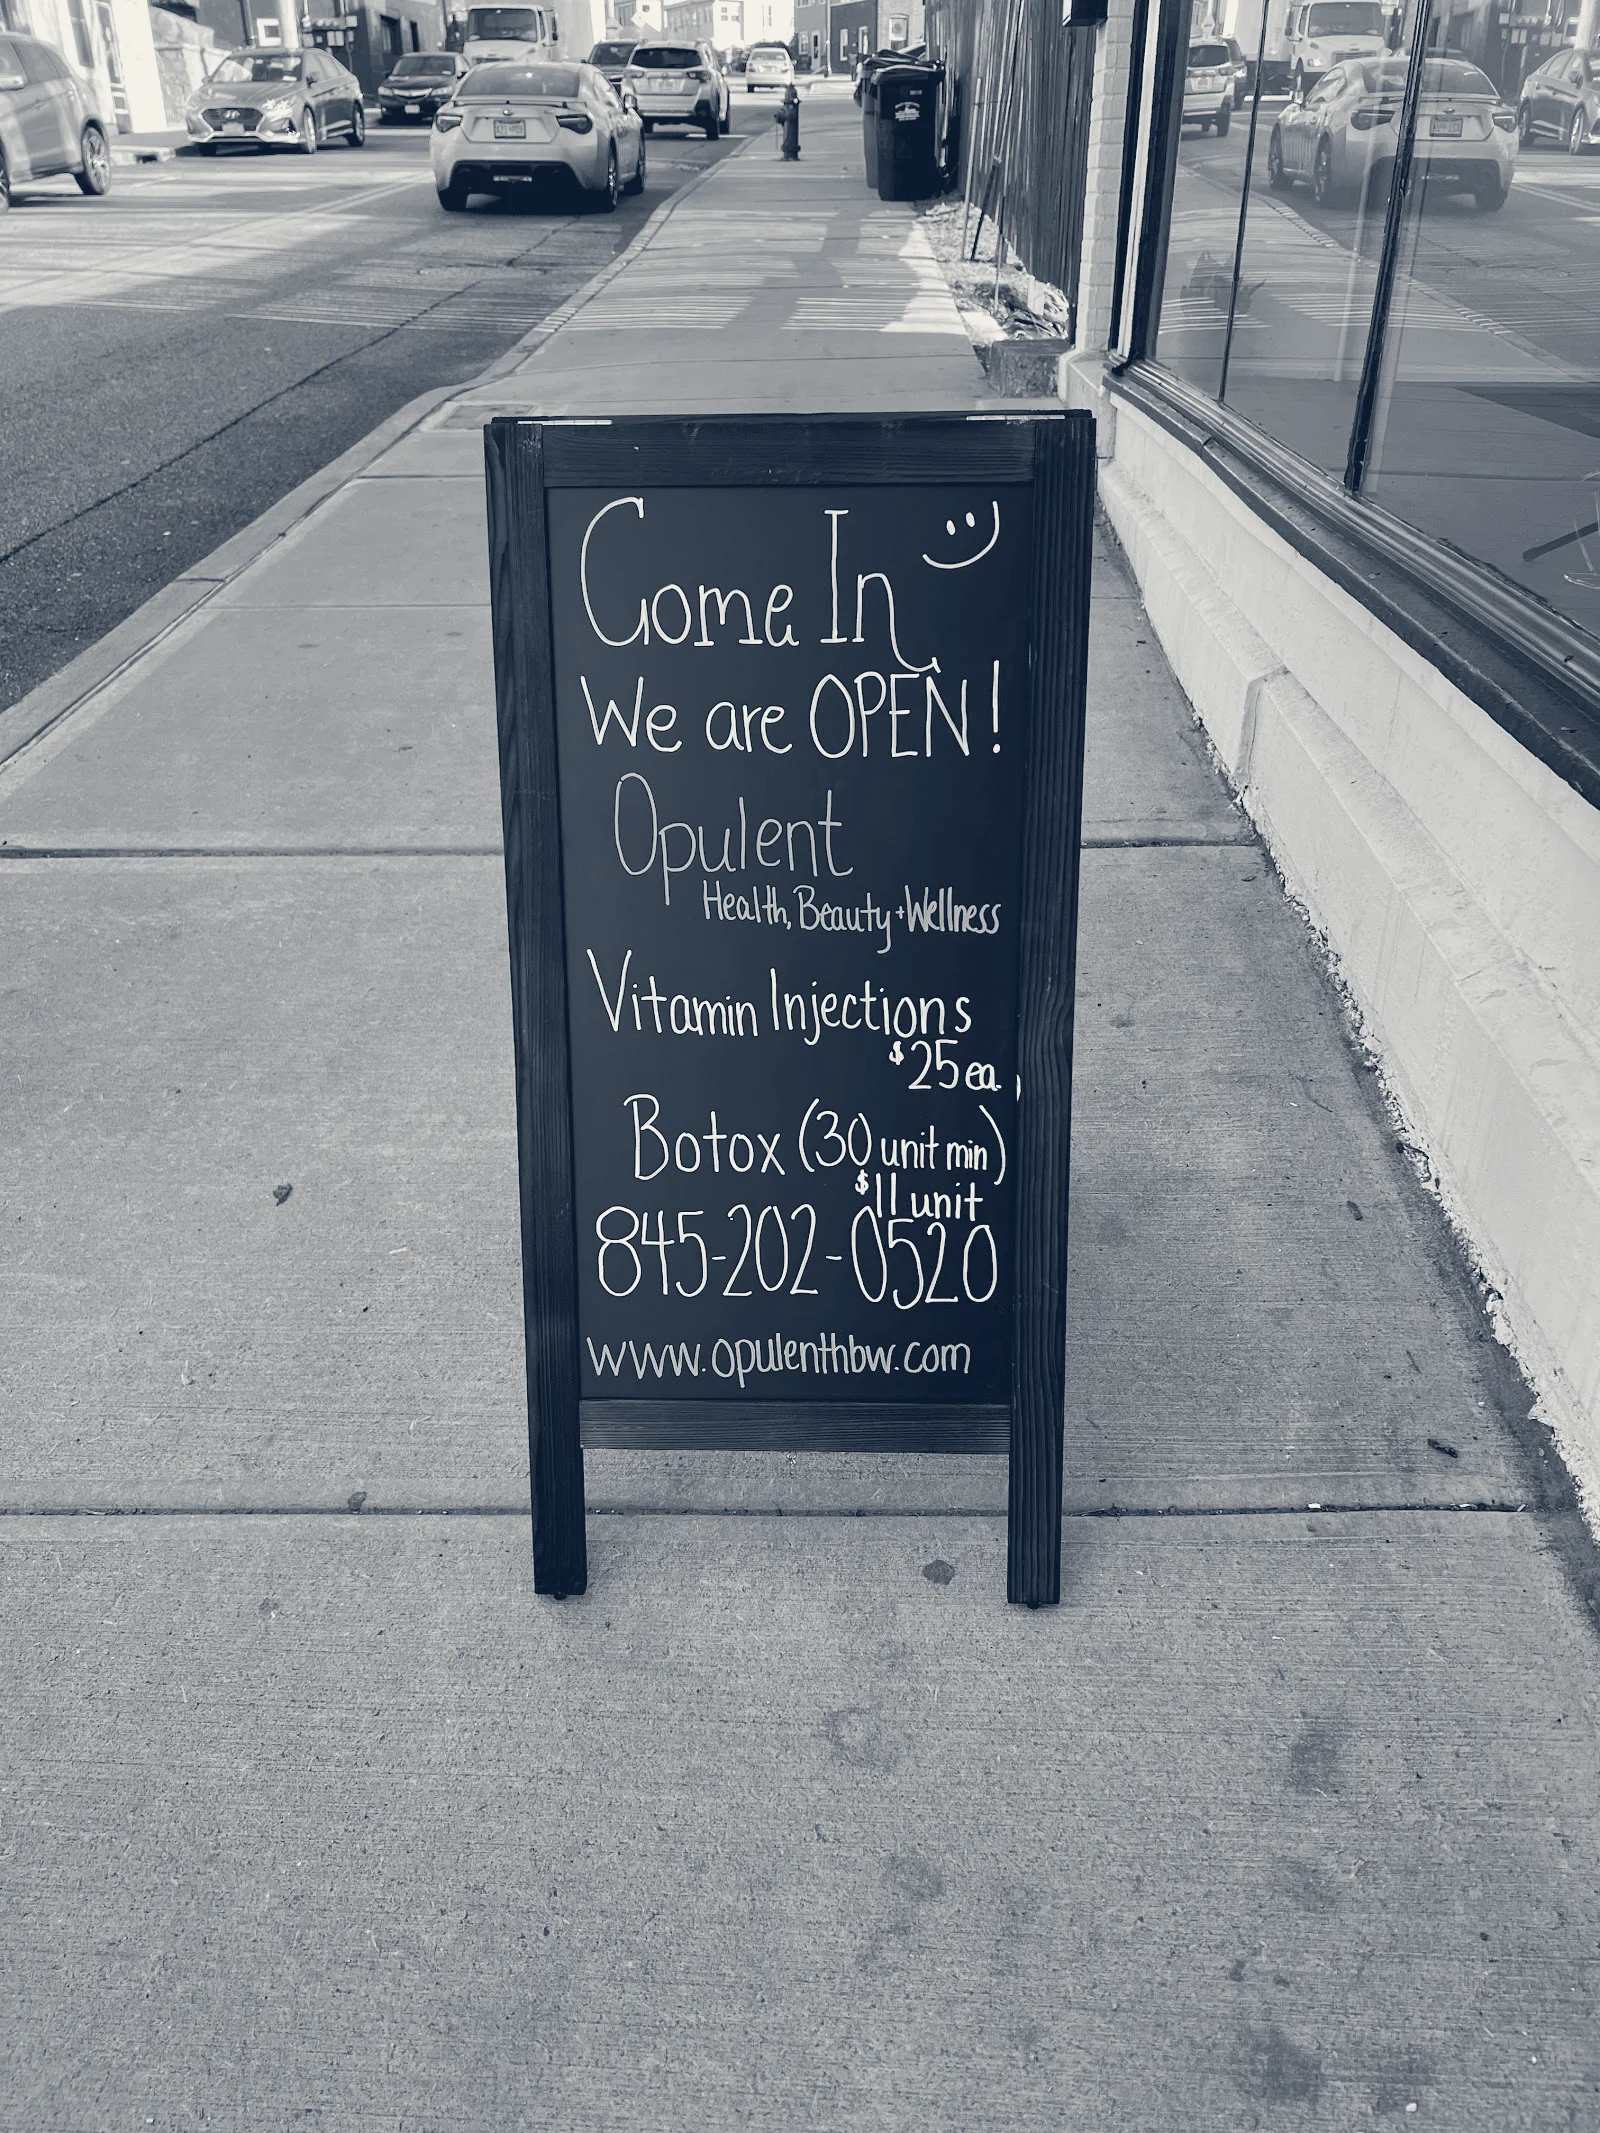 Come In
We are OPEN!
Opulent
Health, Beauty + Wellness
Vitamin Injections
$25 ea.
Botox (30 unit min)
$11 unit
845-202-0520
www.opulenthbw.com